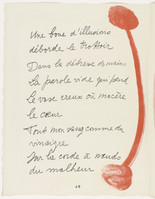 Une boue d'illusions
déborde le trottoir
Dans la détresse des mains
La parole vide qui pend
Le vase creux où macère
le cœur
Tout mon sang comme du
vinaigre
Sur la corde à nœuds
du malheur